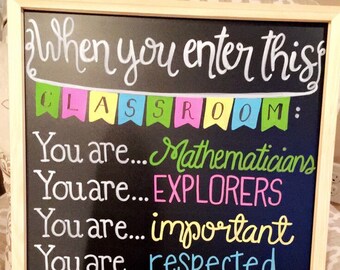 When you enter this
CLASSROOM:
You are... Mathematicians
You are... EXPLORERS
You are... important
You are... respected